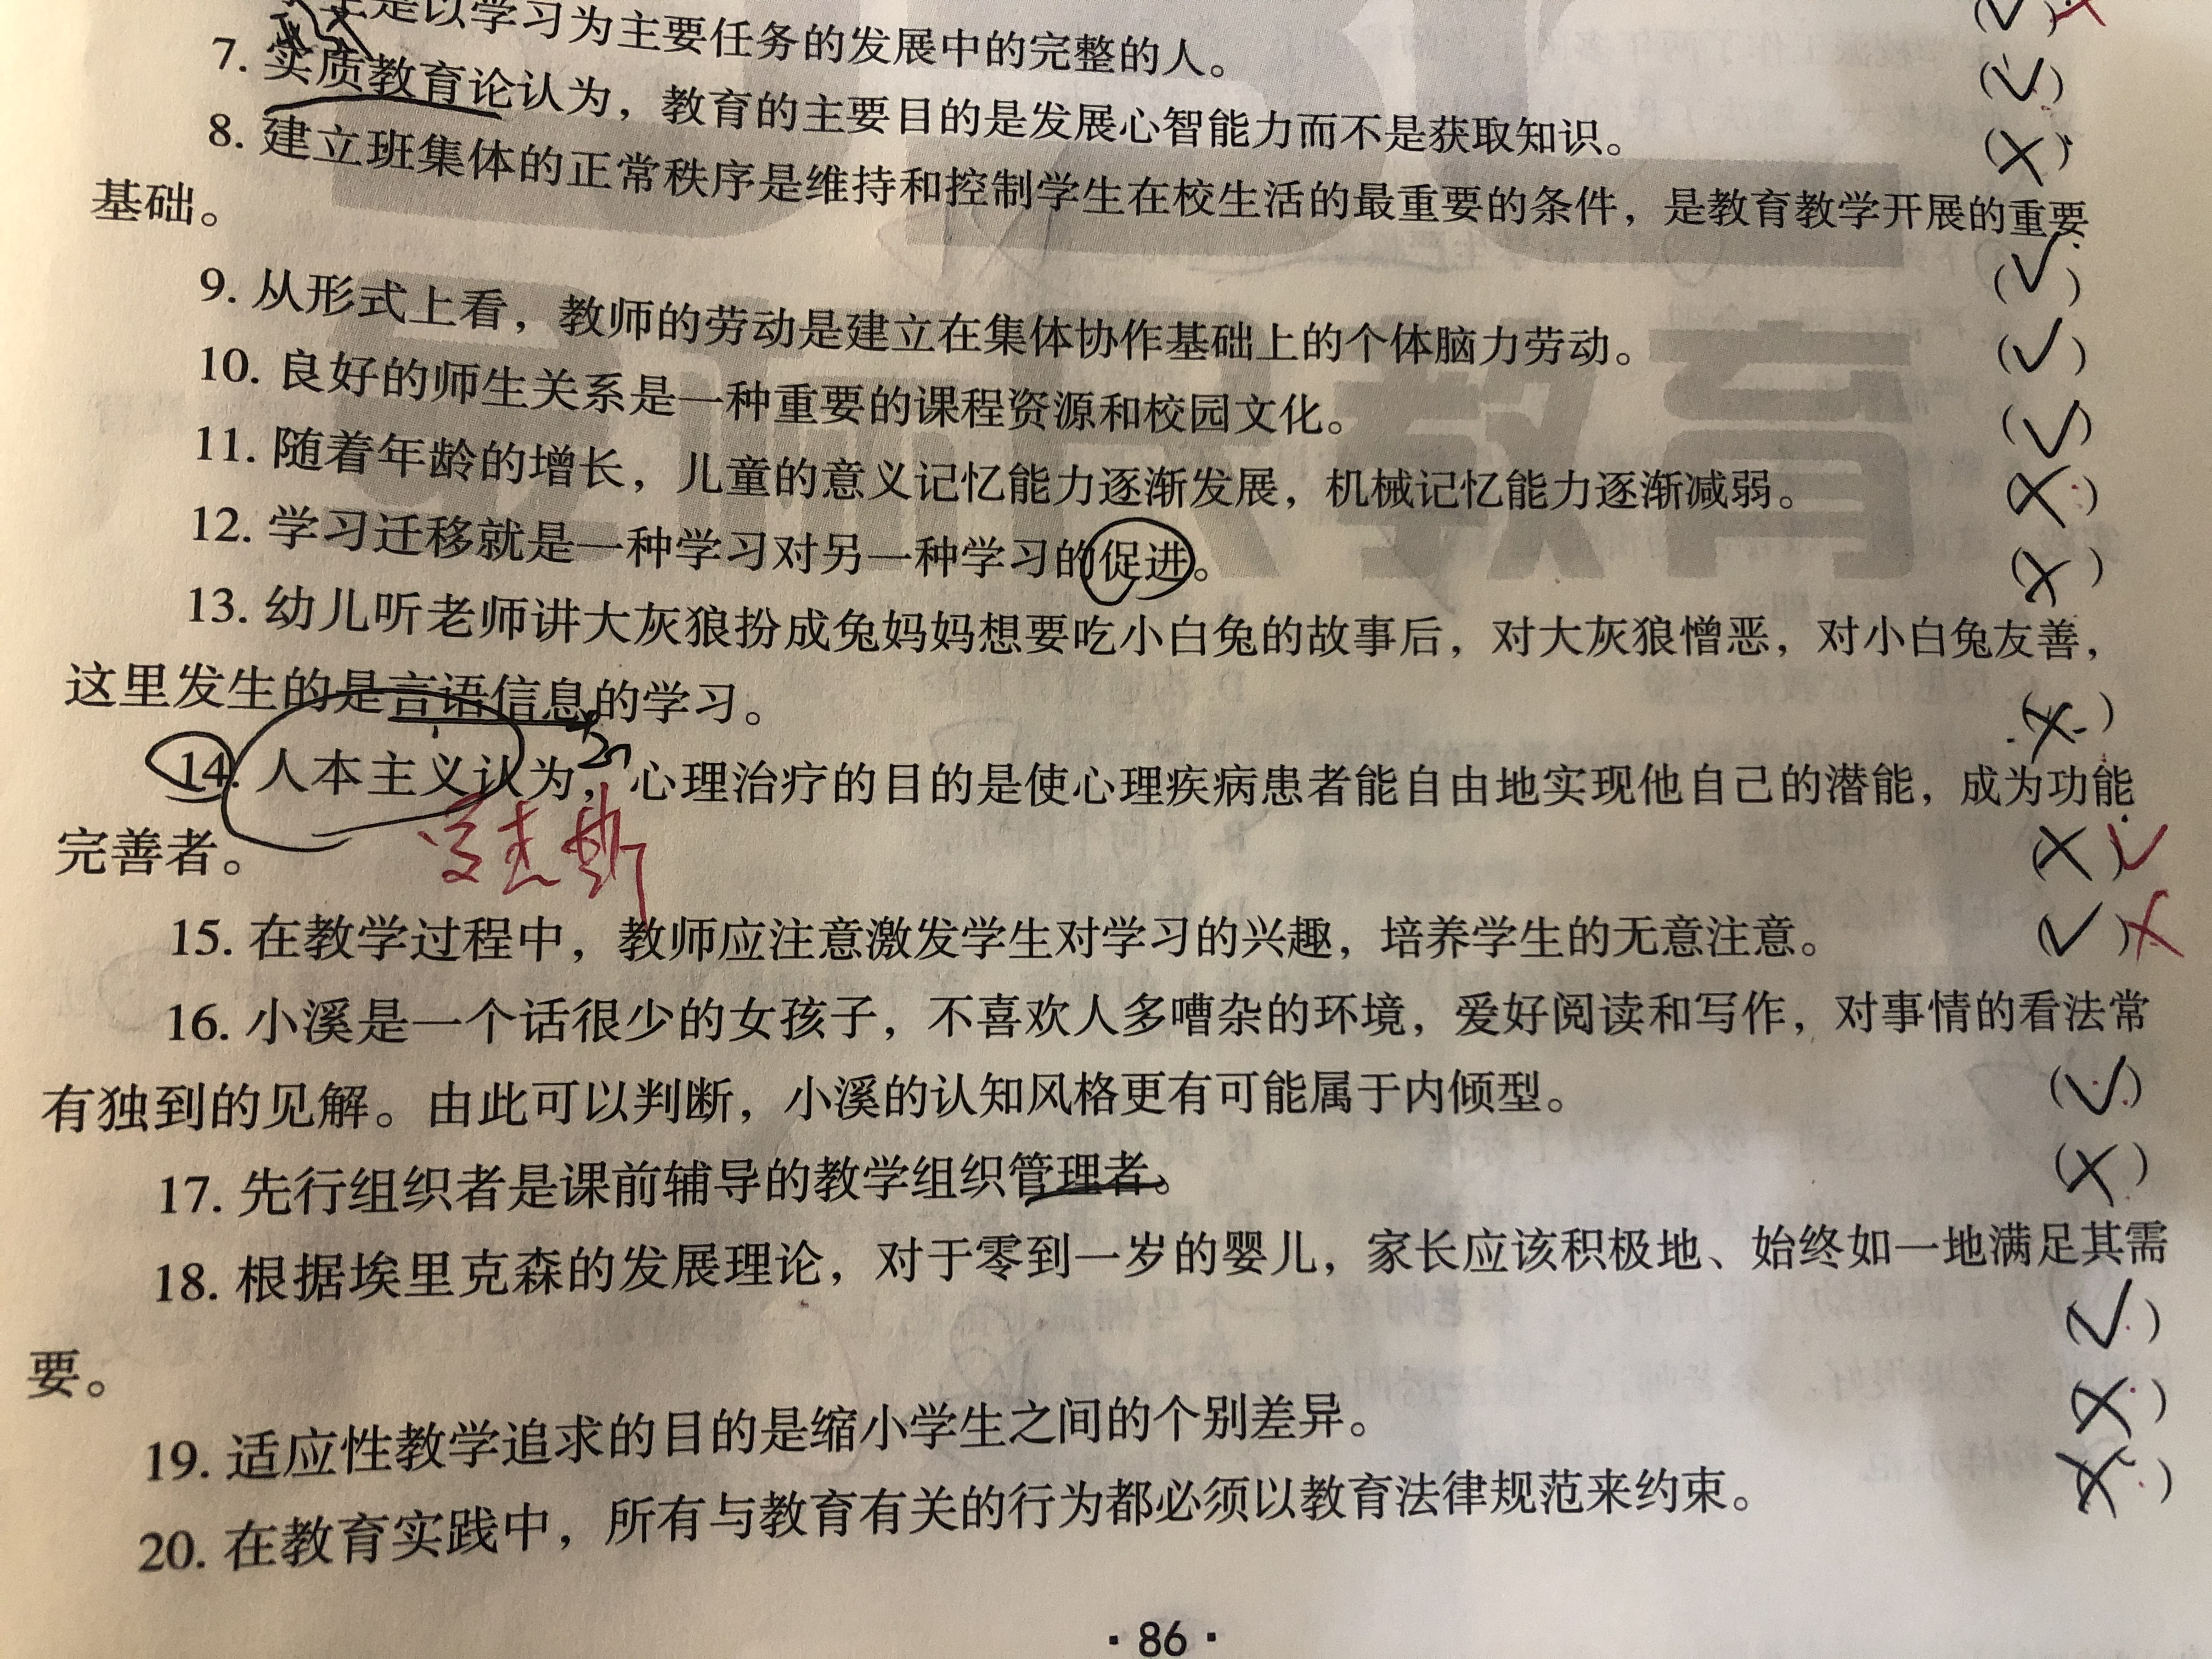 是以学习为主要任务的发展中的完整的人。 (√) ×
7. 实质教育论认为，教育的主要目的是发展心智能力而不是获取知识。 (√)
8. 建立班集体的正常秩序是维持和控制学生在校生活的最重要的条件，是教育教学开展的重要 (×)
基础。 (√)
9. 从形式上看，教师的劳动是建立在集体协作基础上的个体脑力劳动。 (√)
10. 良好的师生关系是一种重要的课程资源和校园文化。 (√)
11. 随着年龄的增长，儿童的意义记忆能力逐渐发展，机械记忆能力逐渐减弱。 (×)
12. 学习迁移就是一种学习对另一种学习的促进。 (×)
13. 幼儿听老师讲大灰狼扮成兔妈妈想要吃小白兔的故事后，对大灰狼憎恶，对小白兔友善，
这里发生的是言语信息的学习。 (×)
14. 人本主义认为，心理治疗的目的是使心理疾病患者能自由地实现他自己的潜能，成为功能
罗杰斯
完善者。 (×) √
15. 在教学过程中，教师应注意激发学生对学习的兴趣，培养学生的无意注意。 (√) ×
16. 小溪是一个话很少的女孩子，不喜欢人多嘈杂的环境，爱好阅读和写作，对事情的看法常
有独到的见解。由此可以判断，小溪的认知风格更有可能属于内倾型。 (√)
17. 先行组织者是课前辅导的教学组织管理者。 (×)
18. 根据埃里克森的发展理论，对于零到一岁的婴儿，家长应该积极地、始终如一地满足其需
要。 (√)
19. 适应性教学追求的目的是缩小学生之间的个别差异。 (×)
20. 在教育实践中，所有与教育有关的行为都必须以教育法律规范来约束。 (×)
·86·